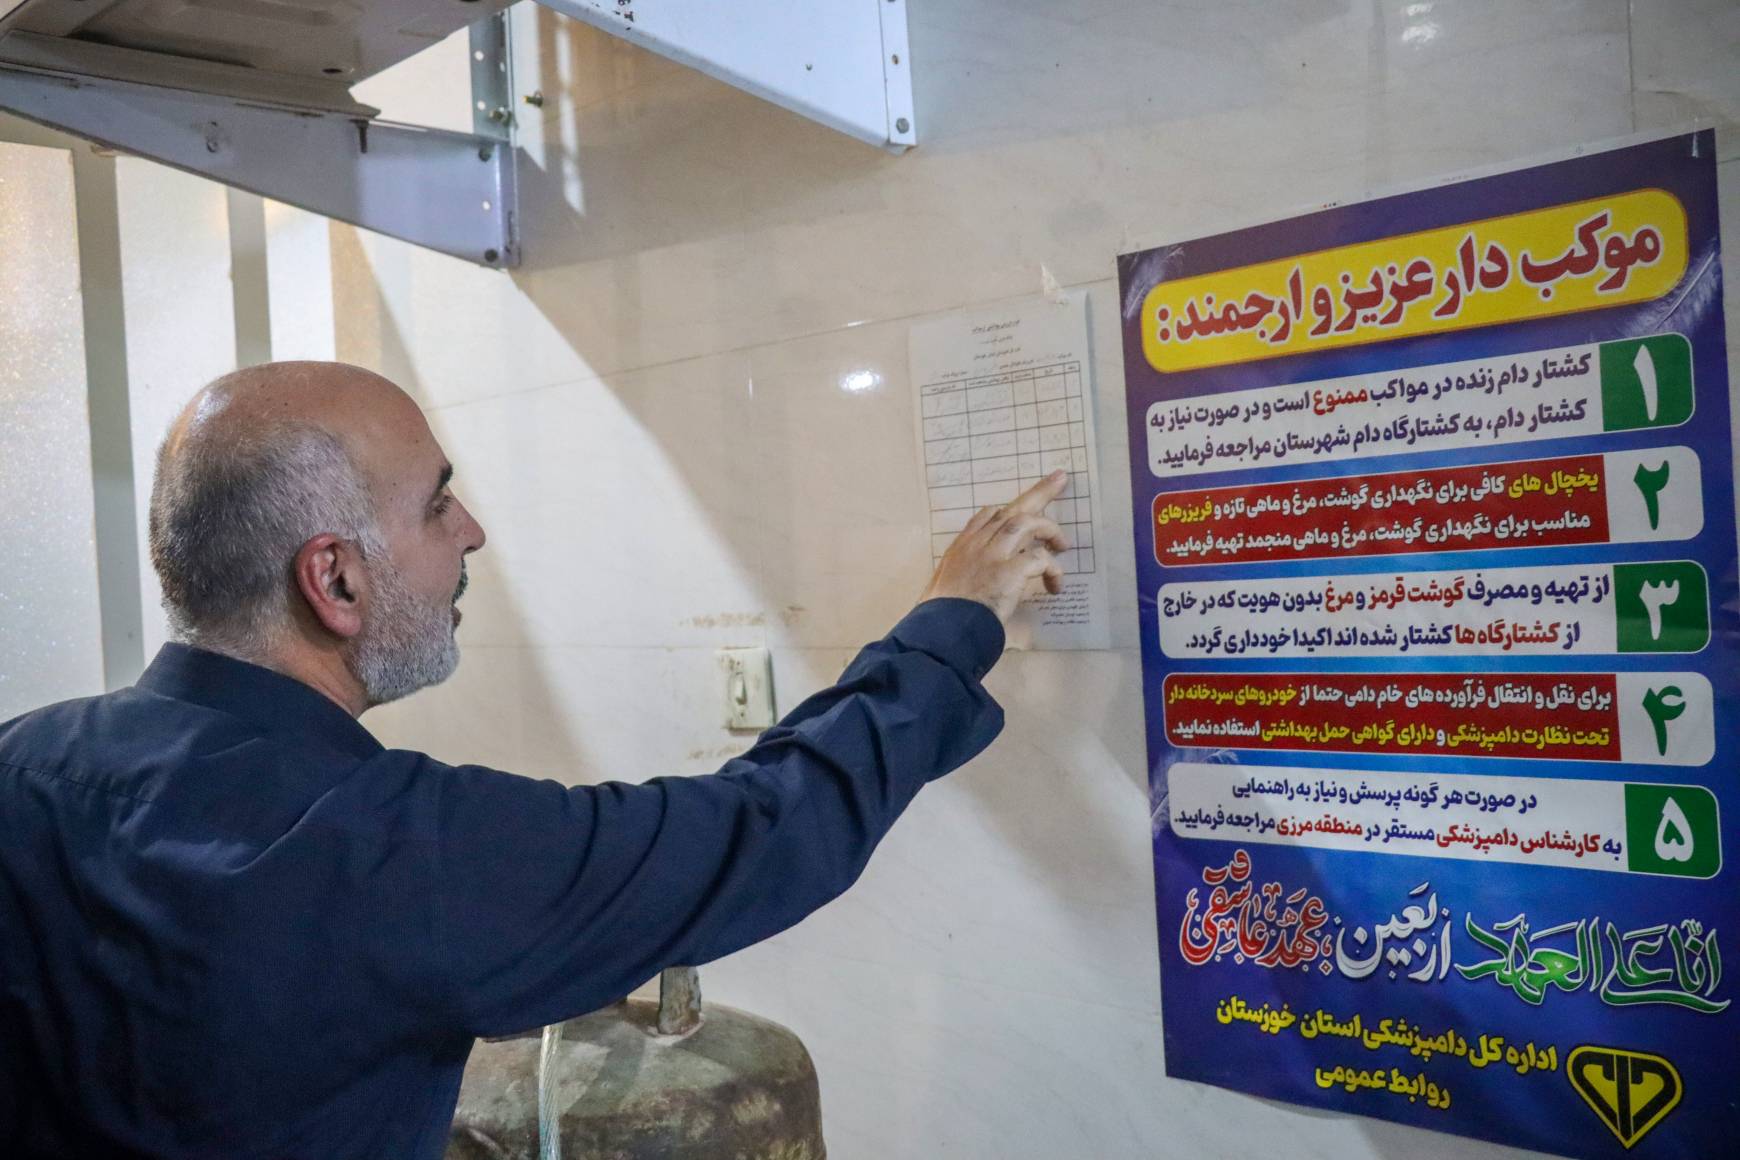 موکب دار عزیز و ارجمند:
۱
کشتار دام زنده در مواکب ممنوع است و در صورت نیاز به
کشتار دام، به کشتارگاه دام شهرستان مراجعه فرمایید.
۲
یخچال های کافی برای نگهداری گوشت، مرغ و ماهی تازه و فریزرهای
مناسب برای نگهداری گوشت، مرغ و ماهی منجمد تهیه فرمایید.
۳
از تهیه و مصرف گوشت قرمز و مرغ بدون هویت که در خارج
از کشتارگاه ها کشتار شده اند اکیدا خودداری گردد.
۴
برای نقل و انتقال فرآورده های خام دامی حتما از خودروهای سردخانه دار
تحت نظارت دامپزشکی و دارای گواهی حمل بهداشتی استفاده نمایید.
۵
در صورت هر گونه پرسش و نیاز به راهنمایی
به کارشناس دامپزشکی مستقر در منطقه مرزی مراجعه فرمایید.
انّا علی العهد اربَعین، عهدِ عاشقی
اداره کل دامپزشکی استان خوزستان
روابط عمومی